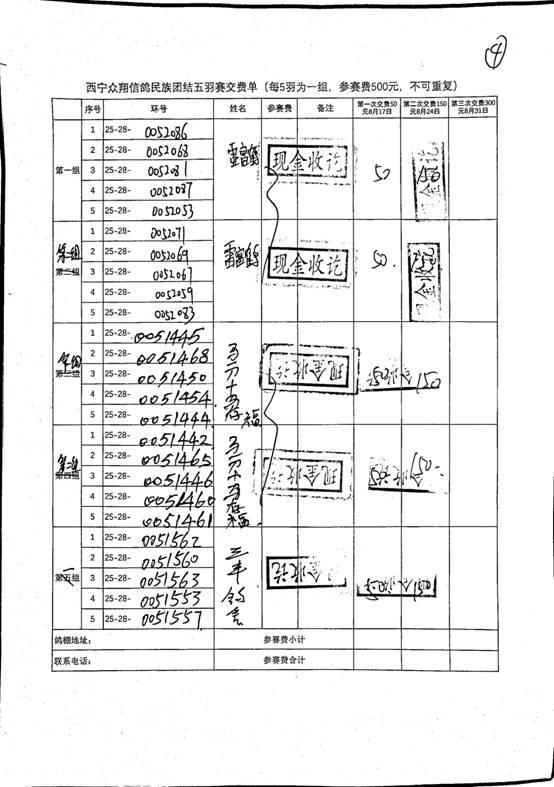 ④
西宁众翔信鸽民族团结五羽赛交费单（每5羽为一组，参赛费500元，不可重复）
序号 环号 姓名 参赛费 备注 第一次交费50元8月17日 第二次交费150元8月24日 第三次交费300元8月31日
第一组
1 25-28- 0052086
2 25-28- 0052068
3 25-28- 0052081
4 25-28- 0052087
5 25-28- 0052053
现金收讫 50 150 现金收讫
第二组
1 25-28- 0052071
2 25-28- 0052069
3 25-28- 0052067
4 25-28- 0052059
5 25-28- 0052083
现金收讫 50. 现金收讫
第三组
1 25-28- 0051445
2 25-28- 0051468
3 25-28- 0051450
4 25-28- 0051454
5 25-28- 0051444
现金收讫 150
第四组
1 25-28- 0051442
2 25-28- 0051465
3 25-28- 0051446
4 25-28- 0051460
5 25-28- 0051461
现金收讫 150-
第五组
1 25-28- 0051562
2 25-28- 0051560
3 25-28- 0051563
4 25-28- 0051553
5 25-28- 0051557
现金收讫
鸽棚地址： 参赛费小计
联系电话： 参赛费合计